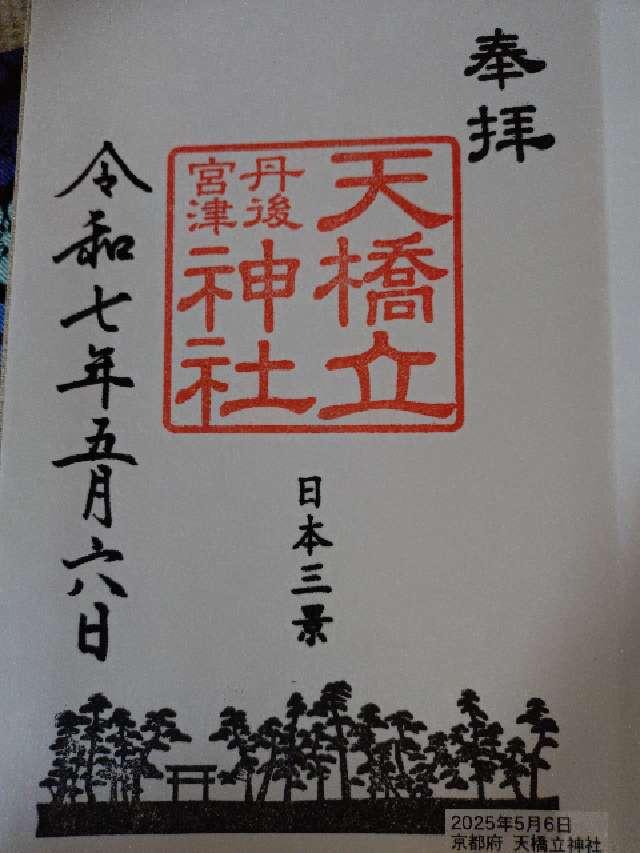 奉拝
天橋立
丹後
宮津
神社
日本三景
令和七年五月六日
2025年5月6日
京都府 天橋立神社